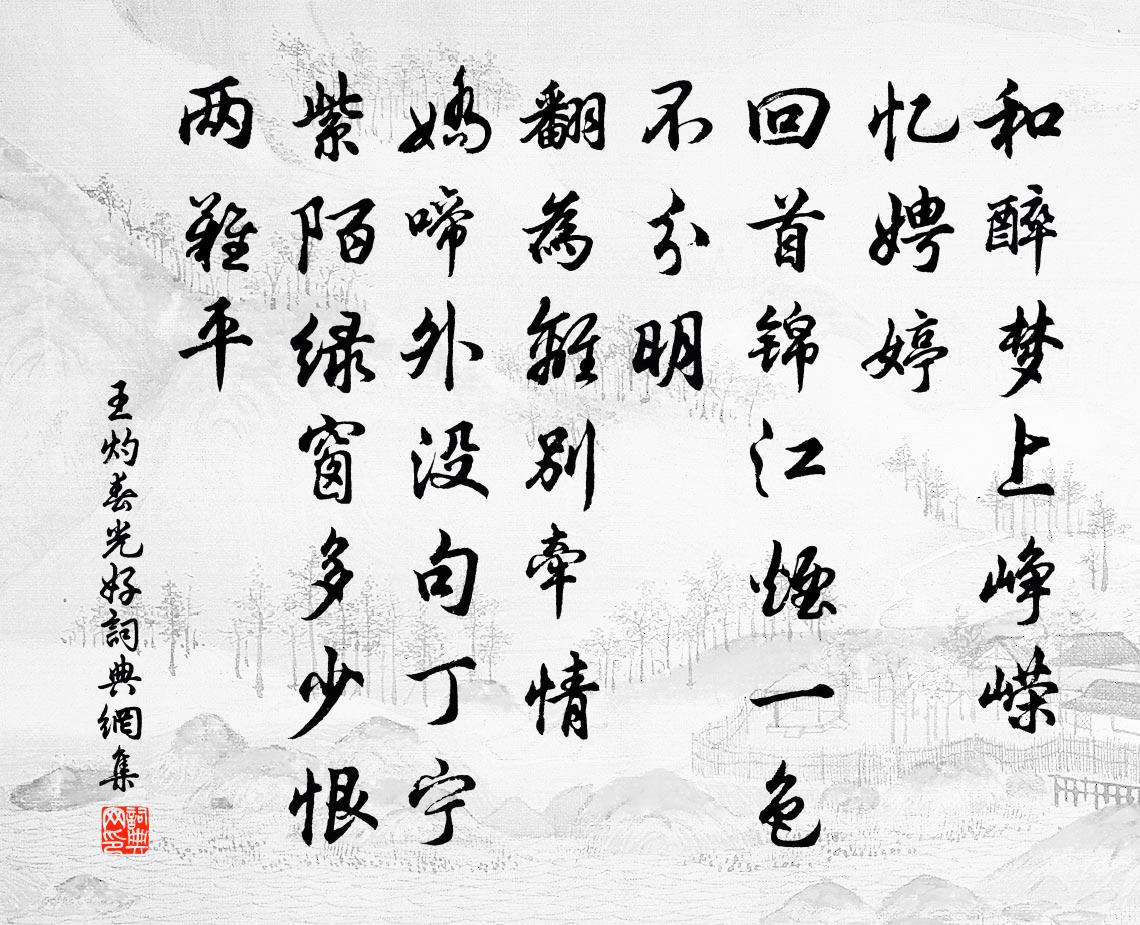 和醉梦上峥嵘
忆娉婷
回首锦江烟一色
不分明
翻为离别牵情
娇啼外没句丁宁
紫陌绿窗多少恨
两难平
王灼春光好詞典網集
詞典
网印